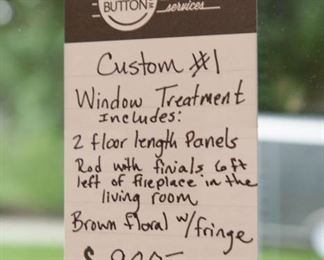 BUTTON
services
Custom #1
Window Treatment
Includes:
2 floor length Panels
Rod with finials 6 ft
left of fireplace in the
living room
Brown floral w/fringe
$